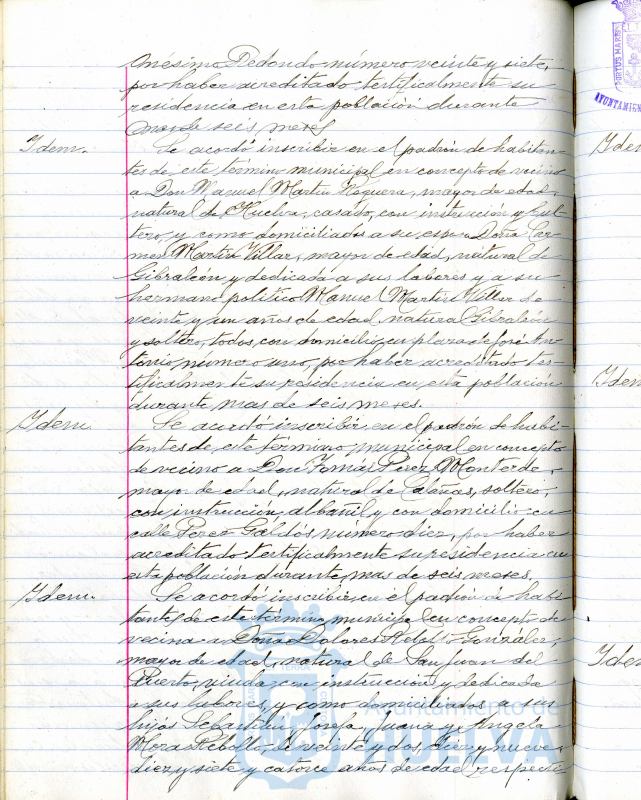 Onésimo Redondo número veinte y siete,
por haber acreditado testificalmente su
residencia en esta población durante
mas de seis meses
Idem.
Se acordó inscribir en el padrón de habitan-
tes de este término municipal en concepto de vecino
a Don Manuel Martin Noguera, mayor de edad,
natural de Huelva, casado, con instrucción y
y como domiciliados a su esposa Doña Car-
men Martin Villar, mayor de edad, natural de
Gibraleón y dedicada a sus labores y a su
hermano político Manuel Martin Villar de
veinte y un años de edad, natural Gibraleón
y soltero, todos, con domicilio en plaza de José An-
tonio número uno, por haber acreditado tes-
tificalmente su residencia en esta población
durante mas de seis meses.
Idem.
Se acordó inscribir en el padrón de habi-
tantes de este término municipal en concepto
de vecino a Don Tomás Pérez Monterde,
mayor de edad, natural de Calañas, soltero,
con instrucción, albañil y con domicilio en
calle Perez Galdós número diez, por haber
acreditado testificalmente su residencia en
esta población durante mas de seis meses.
Idem.
Se acordó inscribir en el padrón de habi-
tantes de este término municipal en concepto de
vecina a Doña Dolores Gonzalez,
mayor de edad, natural de San Juan del
Puerto, viuda con instrucción y dedicada
a sus labores, y como domiciliados a sus
hijos Sebastián, Josefa, Juana y Angela
Mora Rebollo, de veinte y dos, diez y nueve,
diez y siete y catorce años de edad respecti-
Ayuntamiento de
HUELVA
PORTUS MARIS
AYUNTAMIEN
Idem
Idem
Idem